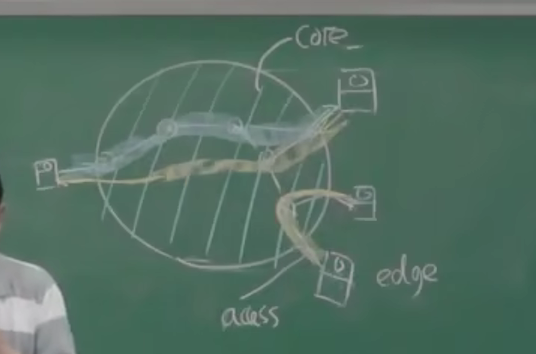 core
edge
access